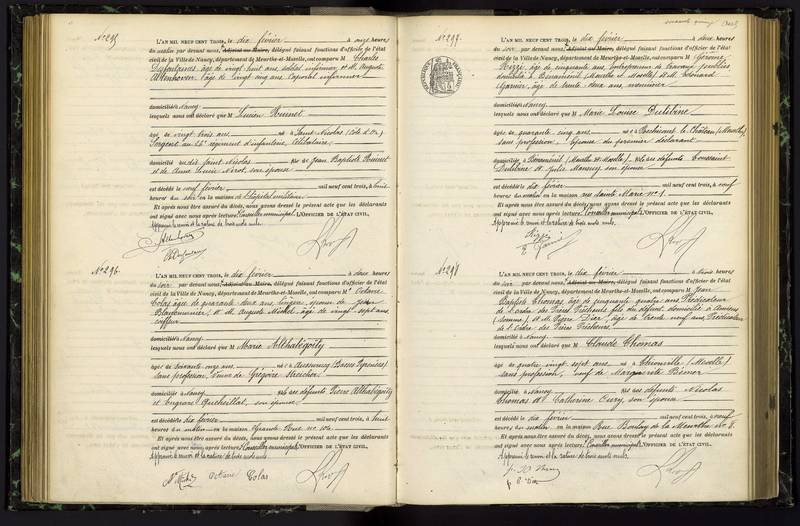 N° 295
L'AN MIL NEUF CENT TROIS, le dix février à onze heures
du matin par devant nous, Adjoint au Maire, délégué faisant fonctions d'officier de l'état
civil de la Ville de Nancy, département de Meurthe-et-Moselle, ont comparu M Charles
âgé de vingt huit ans, soldat infirmier et M. Auguste
Altenhoven âgé de vingt cinq ans Caporal infirmier
domiciliés à Nancy
lesquels nous ont déclaré que M Lucien Prunet
âgé de vingt trois ans né à Saint-Nicolas
Sergent au régiment d'infanterie, Célibataire,
domicilié audit Saint Nicolas fils de Jean Baptiste Prunet
et de Anne son épouse
est décédé le neuf février mil neuf cent trois, à
heures du soir en la maison de l'hôpital militaire
Et après nous être assuré du décès, nous avons dressé le présent acte que les déclarants
ont signé avec nous après lecture. Conseiller municipal L'OFFICIER DE L'ÉTAT CIVIL,
Approuvé le renvoi et la rature de trois mots nuls.
N° 296
L'AN MIL NEUF CENT TROIS, le dix février à deux heures
du soir par devant nous, Adjoint au Maire, délégué faisant fonctions d'officier de l'état
civil de la Ville de Nancy, département de Meurthe-et-Moselle, ont comparu Me Octavie
Colas âgée de quarante deux ans, lingère, épouse de
et M. Auguste Michel, âgé de vingt sept ans
coiffeur
domiciliés à Nancy
lesquels nous ont déclaré que M Marie Althabégoïty
âgée de soixante onze ans née à Aussurucq (Basses Pyrénées)
sans profession, veuve de Grégoire
domiciliée à Nancy fille des défunts Pierre Althabégoïty
et son épouse
est décédée le dix février mil neuf cent trois, à huit
heures du matin en la maison Grande Rue no 104
Et après nous être assuré du décès, nous avons dressé le présent acte que les déclarants
ont signé avec nous après lecture. Conseiller municipal L'OFFICIER DE L'ÉTAT CIVIL,
Approuvé le renvoi et la rature de trois mots nuls.
Octavie Colas
N° 297
L'AN MIL NEUF CENT TROIS, le dix février à deux heures
du soir par devant nous, Adjoint au Maire, délégué faisant fonctions d'officier de l'état
civil de la Ville de Nancy, département de Meurthe-et-Moselle, ont comparu M Gérome
Rizzi, âgé de cinquante ans, entrepreneur de travaux publics
domicilié à (Meurthe et Moselle) et M. Edouard
Garnier, âgé de trente deux ans, menuisier
domicilié à Nancy
lesquels nous ont déclaré que M Marie Louise Dulibine
âgée de quarante cinq ans née à
sans profession, épouse du premier déclarant
domiciliée à (Meurthe et Moselle) fille des défunts Toussaint
Dulibine et Julie son épouse
est décédée le dix février mil neuf cent trois, à neuf
heures du matin en la maison rue Sainte Marie n° 1.
Et après nous être assuré du décès, nous avons dressé le présent acte que les déclarants
ont signé avec nous après lecture. Conseiller municipal L'OFFICIER DE L'ÉTAT CIVIL,
Approuvé le renvoi et la rature de trois mots nuls.
Rizzi
N° 298
L'AN MIL NEUF CENT TROIS, le dix février à trois heures
du soir par devant nous, Adjoint au Maire, délégué faisant fonctions d'officier de l'état
civil de la Ville de Nancy, département de Meurthe-et-Moselle, ont comparu M Jean
Baptiste Thomas, âgé de cinquante quatre ans Prédicateur
de l'ordre des Frères Prêcheurs fils du défunt domicilié à Amiens
(Somme), et M. Pierre Diaz, âgé de trente neuf ans, Prédicateur
de l'Ordre des Frères Prêcheurs
domicilié à Nancy
lesquels nous ont déclaré que M Claude Thomas
âgé de quatre vingt sept ans né à Thionville (Moselle)
sans profession, veuf de Marguerite
domicilié à Nancy fils des défunts Nicolas
Thomas et Catherine son épouse
est décédé le dix février mil neuf cent trois, à neuf
heures du matin en la maison Rue Boulay de la Meurthe No 8.
Et après nous être assuré du décès, nous avons dressé le présent acte que les déclarants
ont signé avec nous après lecture. Conseiller municipal L'OFFICIER DE L'ÉTAT CIVIL,
Approuvé le renvoi et la rature de trois mots nuls.